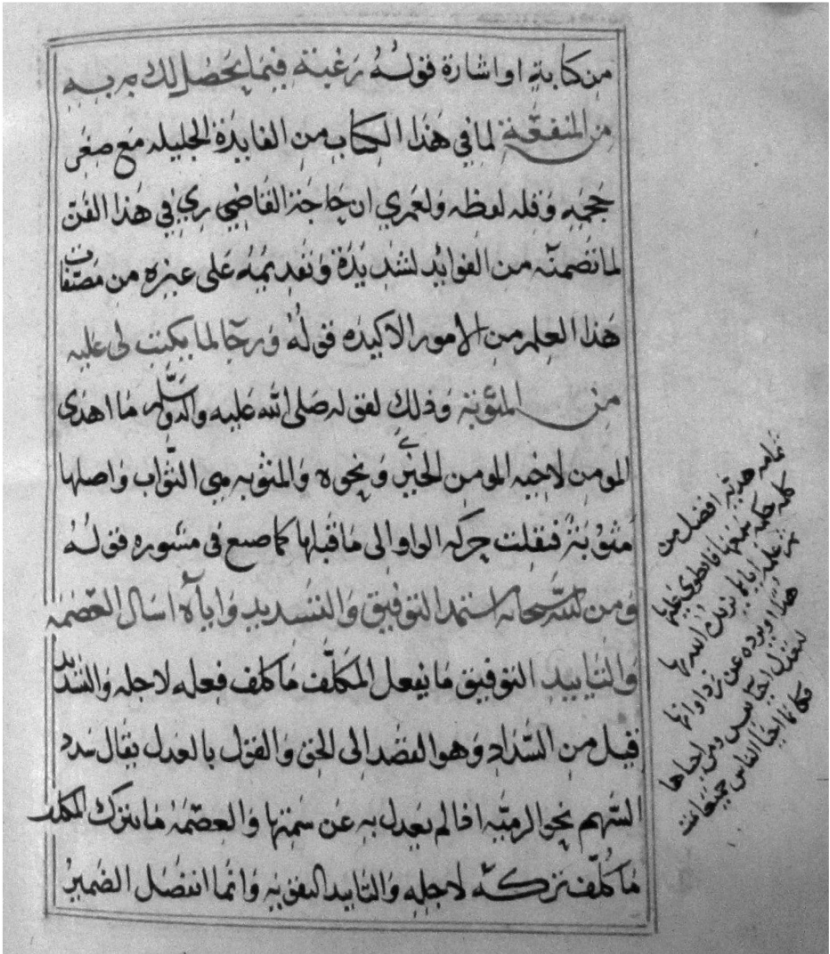 من كتابة او اشارة قوله رغبة فيما يحصل لك به
من المنفعة لما في هذا الكتاب من الفايدة الجليله مع صغر
حجمه وقله لفظه ولعمري ان حاجة القاضي في هذا الفن
لما تضمنه من الفوايد لشديدة وتقديمه على غيره من مصنفات
هذا العلم من الامور الاكيده قوله ورجا لما يكتب لي عليه
من المثوبة وذلك لقوله صلى الله عليه واله وسلم ما اهدى
المومن لاخيه المومن الخير ونحوه والمثوبه هي الثواب واصلها
مثوبة فنقلت حركه الواو الى ما قبلها كما صنع في مشوره قوله
ومن الله سبحانه استمد التوفيق والتسديد واياه اسال العصمة
والتاييد التوفيق ما يفعل المكلف ما كلف فعله لاجله والتسديد
قيل من السداد وهو القصد الى الحق والقول بالعدل يقال سدد
السهم نحو الرميه اذا لم يعدل به عن سمتها والعصمة ما يترك المكلف
ما كلف تركه لاجله والتاييد التقويه وانما انفصل الضمير
تمامه هدية افضل من
كلمه حكمة سمعها فانطوى عليها
ثم علمه اياها يزيده الله بها
هدى او يرده عن ردا وانها
لتعدل احيا نفس ومن احياها
فكانما احيا الناس جميعا تمت